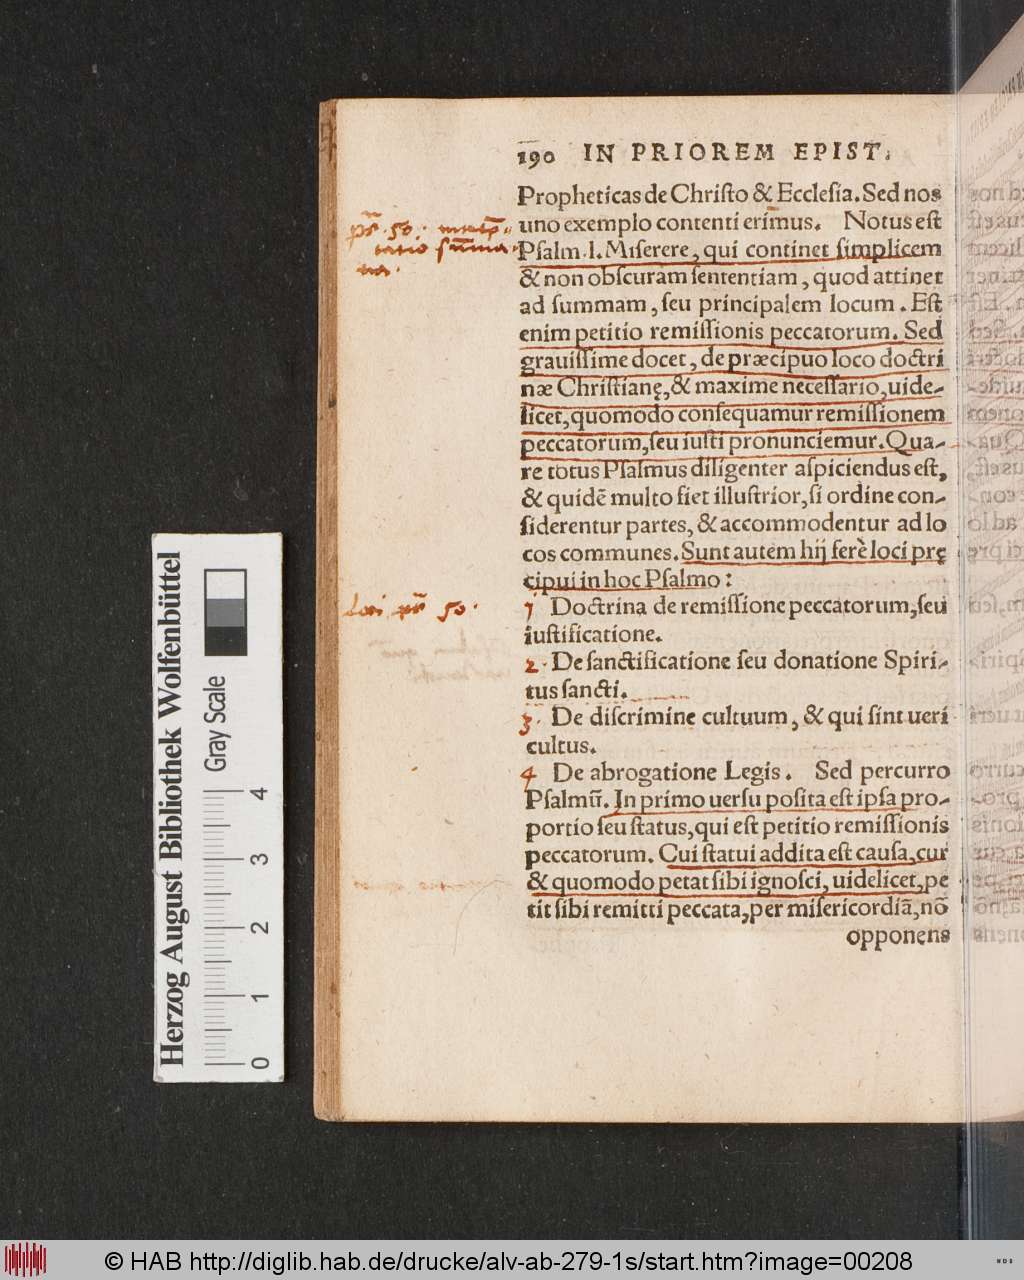 190 IN PRIOREM EPIST.
Propheticas de Chriſto & Eccleſia. Sed nos
uno exemplo contenti erimus. Notus eſt
Pſalm. l. Miſerere, qui continet ſimplicem
& non obſcuram ſententiam, quod attinet
ad ſummam, ſeu principalem locum. Eſt
enim petitio remiſſionis peccatorum. Sed
grauiſſime docet, de præcipuo loco doctri
næ Chriſtianę, & maxime neceſſario, uide-
licet, quomodo conſequamur remiſſionem
peccatorum, ſeu iuſti pronunciemur. Qua-
re totus Pſalmus diligenter aſpiciendus eſt,
& quidē multo fiet illuſtrior, ſi ordine con-
ſiderentur partes, & accommodentur ad lo
cos communes. Sunt autem hij ferè loci prę
cipui in hoc Pſalmo:
1 Doctrina de remiſſione peccatorum, ſeu
iuſtificatione.
2. De ſanctificatione ſeu donatione Spiri-
tus ſancti.
3. De diſcrimine cultuum, & qui ſint ueri
cultus.
4 De abrogatione Legis. Sed percurro
Pſalmū. In primo uerſu poſita eſt ipſa pro-
portio ſeu ſtatus, qui eſt petitio remiſſionis
peccatorum. Cui ſtatui addita eſt cauſa, cur
& quomodo petat ſibi ignoſci, uidelicet, pe
tit ſibi remitti peccata, per miſericordiā, nō
opponens
ps. 50.
Loci ps 50.
Herzog August Bibliothek Wolfenbüttel
Gray Scale
0 1 2 3 4
© HAB http://diglib.hab.de/drucke/alv-ab-279-1s/start.htm?image=00208